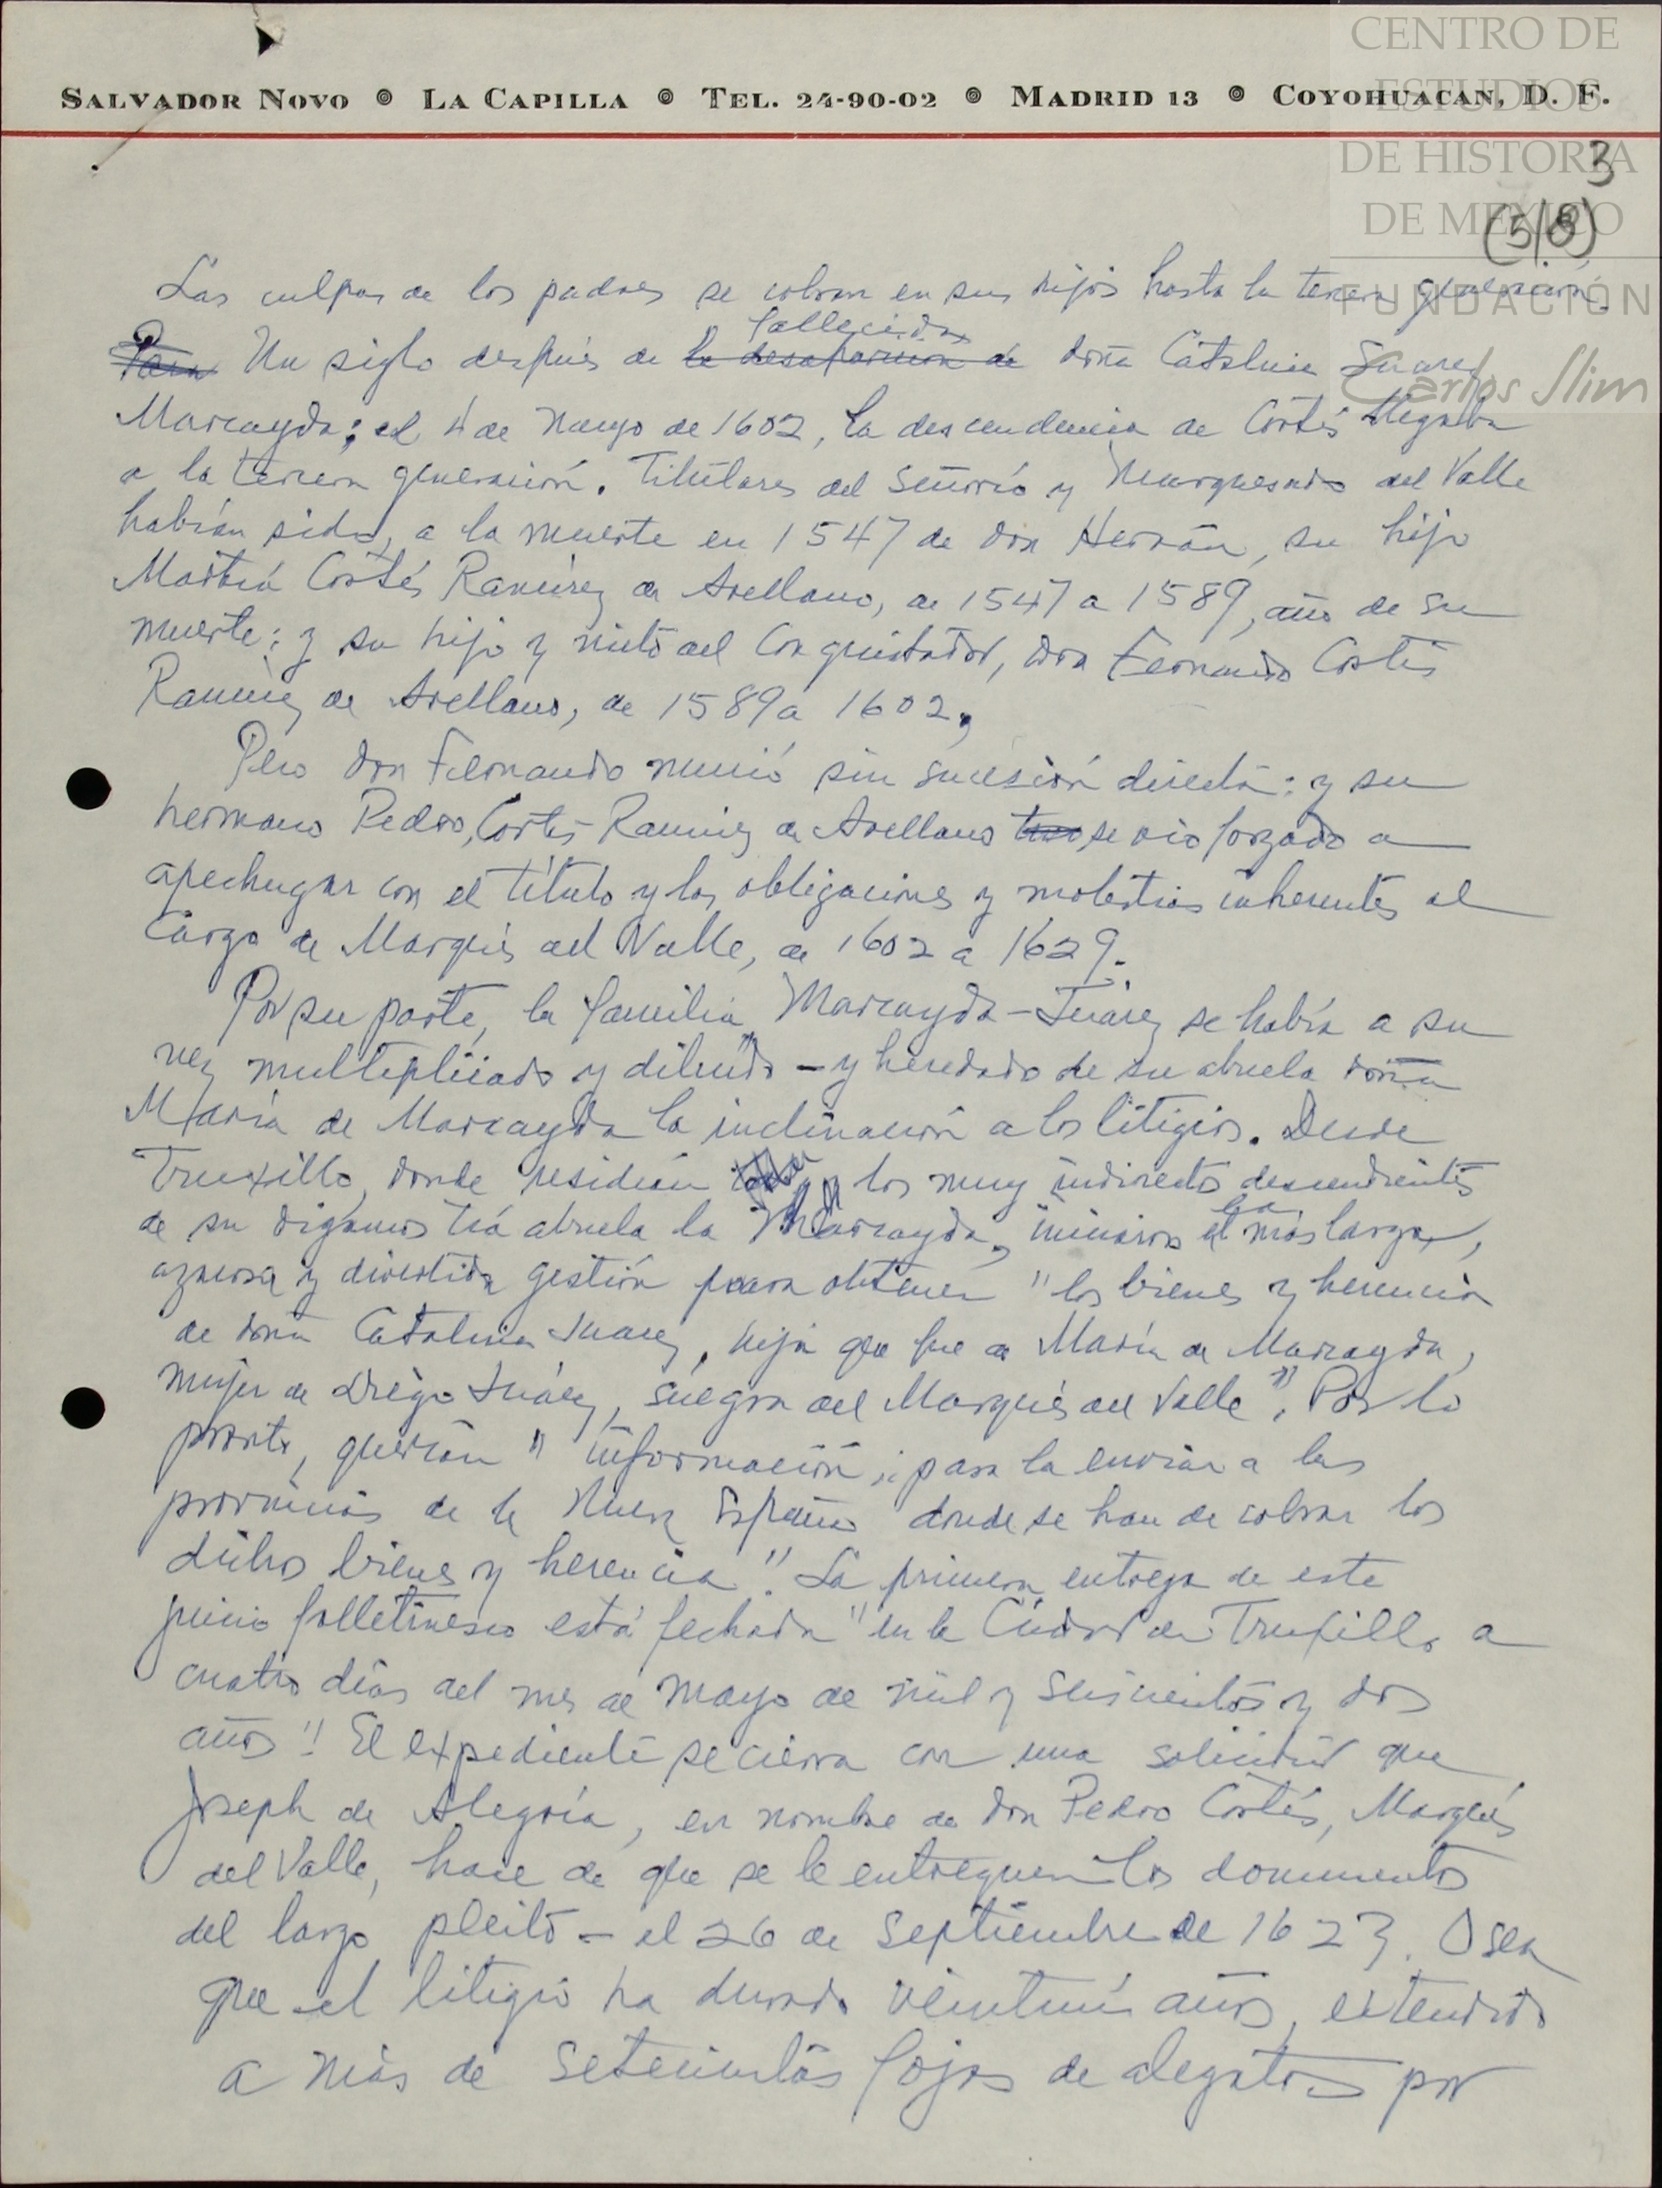 SALVADOR NOVO LA CAPILLA TEL. 24-90-02 MADRID 13 COYOHUACAN, D. F.
CENTRO DE
ESTUDIOS
DE HISTORIA
DE MEXICO
FUNDACIÓN
Carlos Slim
3
(5/8)
Las culpas de los padres se cobran en sus hijos hasta la tercera generación.
Para Un siglo después de la desaparición de fallecida doña Catalina Suarez
Marcayda; el 4 de Mayo de 1602, la descendencia de Cortés llegaba
a la tercera generación. Titulares del Señorío y Marquesado del Valle
habían sido, a la muerte en 1547 de don Hernán, su hijo
Martín Cortés Ramírez de Arellano, de 1547 a 1589, año de su
muerte; y su hijo y nieto del Conquistador, don Fernando Cortés
Ramírez de Arellano, de 1589 a 1602.
Pero don Fernando murió sin sucesión directa: y su
hermano Pedro Cortés Ramírez de Arellano tuvo se vio forzado a
apechugar con el título y las obligaciones y molestias inherentes al
cargo de Marqués del Valle, de 1602 a 1629.
Por su parte, la familia Marcayda-Juárez se había a su
vez multiplicado y diluido - y heredado de su abuela doña
María de Marcayda la inclinación a los litigios. Desde
Truxillo, donde residían los muy indirectos descendientes
de su digamos tía abuela la Marcayda, iniciaron el la más larga,
azarosa y divertida gestión para obtener "los bienes y herencia
de doña Catalina Juarez, hija que fue de María de Marcayda,
mujer de Diego Juárez, suegra del Marqués del Valle". Por lo
pronto, querían "información para la enviar a las
provincias de la Nueva España donde se han de cobrar los
dichos bienes y herencia". La primera entrega de este
juicio folletinesco está fechada "en la Ciudad de Truxillo a
cuatro días del mes de mayo de mil y seiscientos y dos
años". El expediente se cierra con una solicitud que
Joseph de Alegría, en nombre de don Pedro Cortés, Marqués
del Valle, hace de que se le entreguen los documentos
del largo pleito - el 26 de Septiembre de 1623. O sea
que el litigio ha durado veintiun años, extendido
a más de setecientas fojas de alegatos por